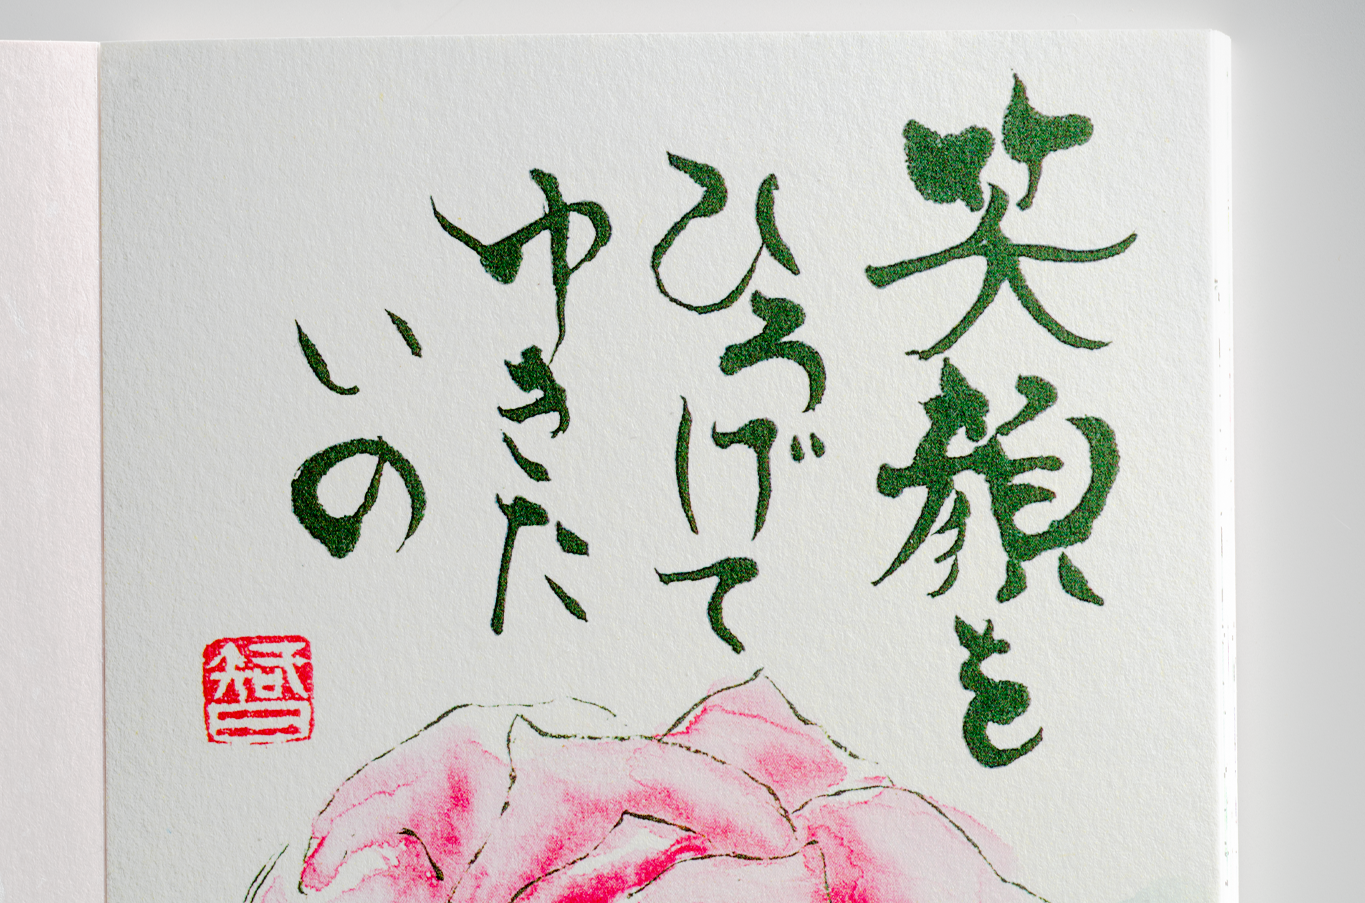 笑顔を
ひろげて
ゆきた
いの
智